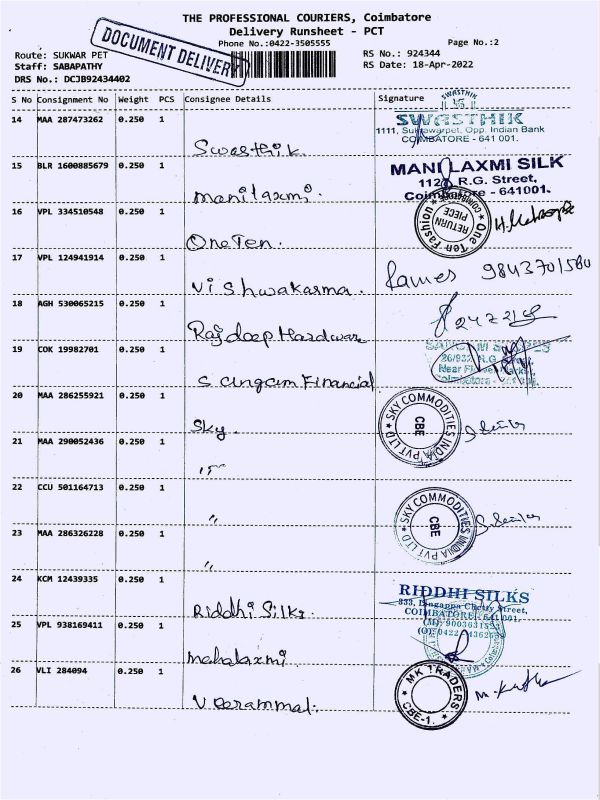 THE PROFESSIONAL COURIERS, Coimbatore
Delivery Runsheet - PCT
Phone No.:0422-3505555
Page No.:2
DOCUMENT DELIVERY
Route: SUKWAR PET
RS No.: 924344
Staff: SABAPATHY
RS Date: 18-Apr-2022
DRS No.: DCJB92434402
S No Consignment No Weight PCS Consignee Details Signature
SWASTHIK
14 MAA 287473262 0.250 1
SWASTHIK
1111, Sukrawarpet, Opp. Indian Bank
COIMBATORE - 641 001.
Swasthik
15 BLR 1600885679 0.250 1
MANILAXMI SILK
R.G. Street,
Coimbatore - 641001.
manilaxmi.
16 VPL 334510548 0.250 1
One Ten Fashion
COIMBATORE
RETURN PIECE
One Ten.
17 VPL 124941914 0.250 1
Vishwakarma.
Rames
18 AGH 530065215 0.250 1
Rajdeep Hardware
19 COK 19982701 0.250 1
Sangam Financial
20 MAA 286255921 0.250 1
SKY COMMODITIES INDIA PVT LTD
CBE
Sky.
21 MAA 290052436 0.250 1
"
22 CCU 501164713 0.250 1
SKY COMMODITIES INDIA PVT LTD
CBE
"
23 MAA 286326228 0.250 1
"
24 KCM 12439335 0.250 1
RIDDHI SILKS
833, Lingappa Chetty Street,
COIMBATORE - 641 001.
Riddhi Silks.
25 VPL 938169411 0.250 1
mahalaxmi
26 VLI 284094 0.250 1
MK TRADERS
CBE-1.
Veerammal.